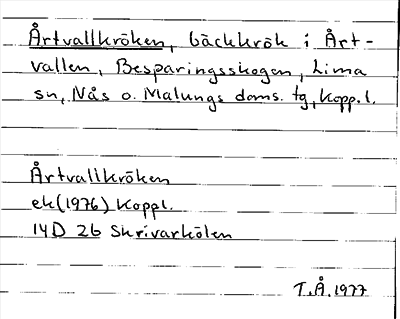 Årtvallkröken, bäckkrök i Årt-
vallen, Besparingsskogen, Lima
sn, Nås o. Malungs doms. tg, Kopp. l.
Årtvallkröken
ek (1976) Koppl.
14D 2b Skrivarkölen
T.Å. 1977